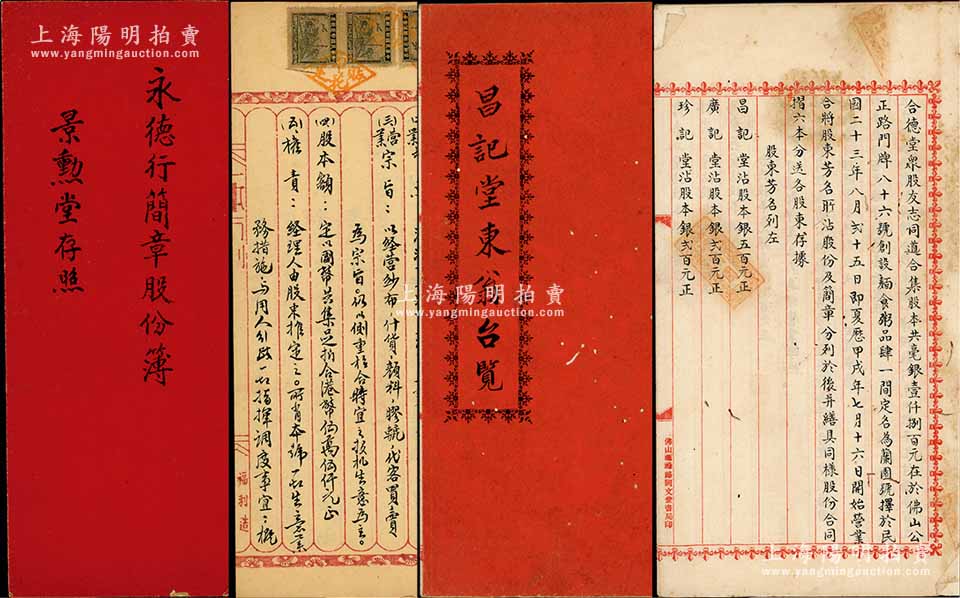 上海陽明拍賣
www.yangmingauction.com
永德行簡章股份簿
景勳堂存照
㈢營業宗旨：以經營紗布、什貨、顏料、膠轆、代客買賣
為宗旨。
㈣股本額：定以國幣共集足折合港幣伍萬伍仟元正
經理人由股東推定之。所有本號一切生意業
務措施、与用人行政一切指揮調度事宜、概
福利造
昌記堂東翁台覽
合德堂眾股友志同道合集股本共毫銀壹仟捌百元在於佛山公
正路門牌八十六號創設麵食粥品肆一間定名為蘭園號擇於民
國二十三年八月弍十五日即夏歷甲戌年七月十六日開始營業
合將股東芳名所沾股份及簡章分列於後并繕具同樣股份合同
摺六本分送各股東存據
股東芳名列左
昌記堂沾股本銀五百元正
廣記堂沾股本銀弍百元正
珍記堂沾股本銀弍百元正
上海陽明拍賣
www.yangmingauction.com
上海陽明拍賣
www.yangmingauction.com